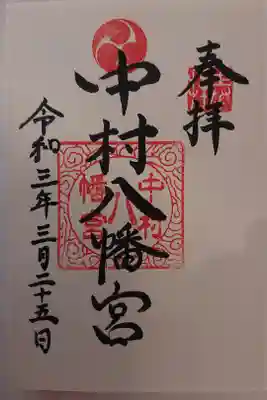 奉拝
中村八幡宮
中村八
幡宮
令和三年三月二十五日